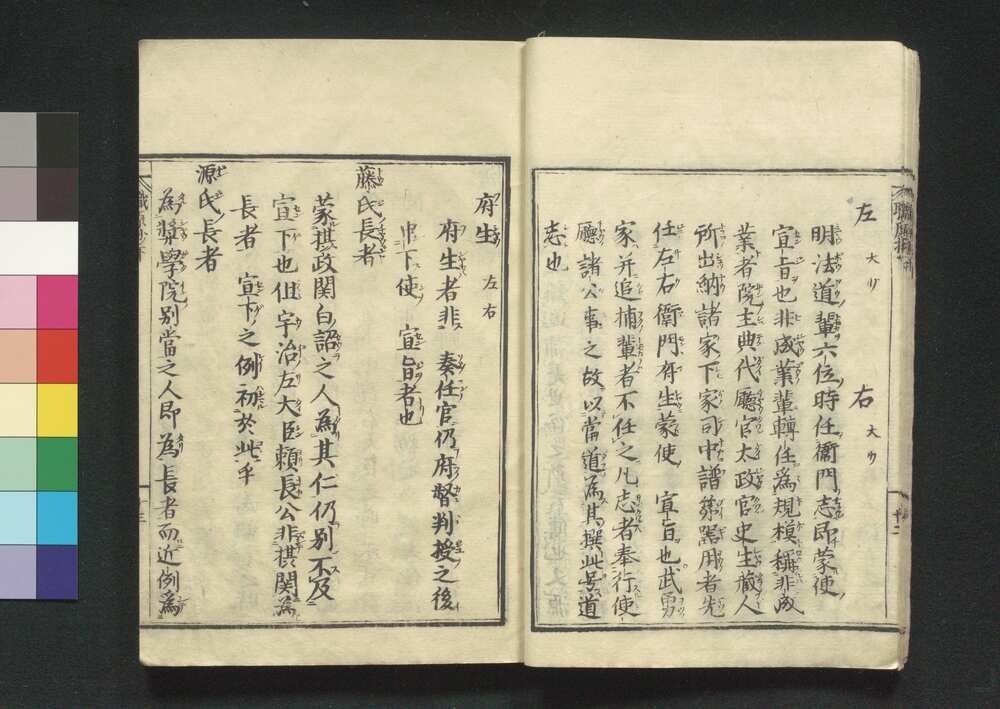 左 大少 右 大少
明法道輩六位時任衛門志即蒙使
宣旨也非成業輩轉任為規模稱非成
業者院主典代廳官太政官史生蔵人
所出納諸家下家司中譜第器用者先
任左右衛門府生蒙使 宣旨也武勇
家并追捕輩者不任之凡志者奉行使
廳諸公事之故以當道為其撰此号道
志也
府生 左右
府生者非 奏任官仍府督判授之後
申下使 宣旨者也
藤氏長者
蒙摂政関白詔之人為其仁仍別不及
宣下也但宇治左大臣頼長公非摂関為
長者 宣下之例初於此乎
源氏長者
為奨學院別當之人即為長者而近例為